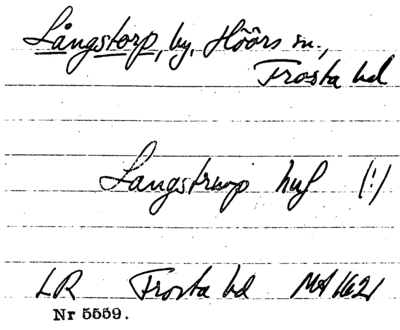 Långstorp, by, Höörs sn.,
Frosta hd
Langstrup huf (!)
LR Frosta hd MA 1621
Nr 5559.